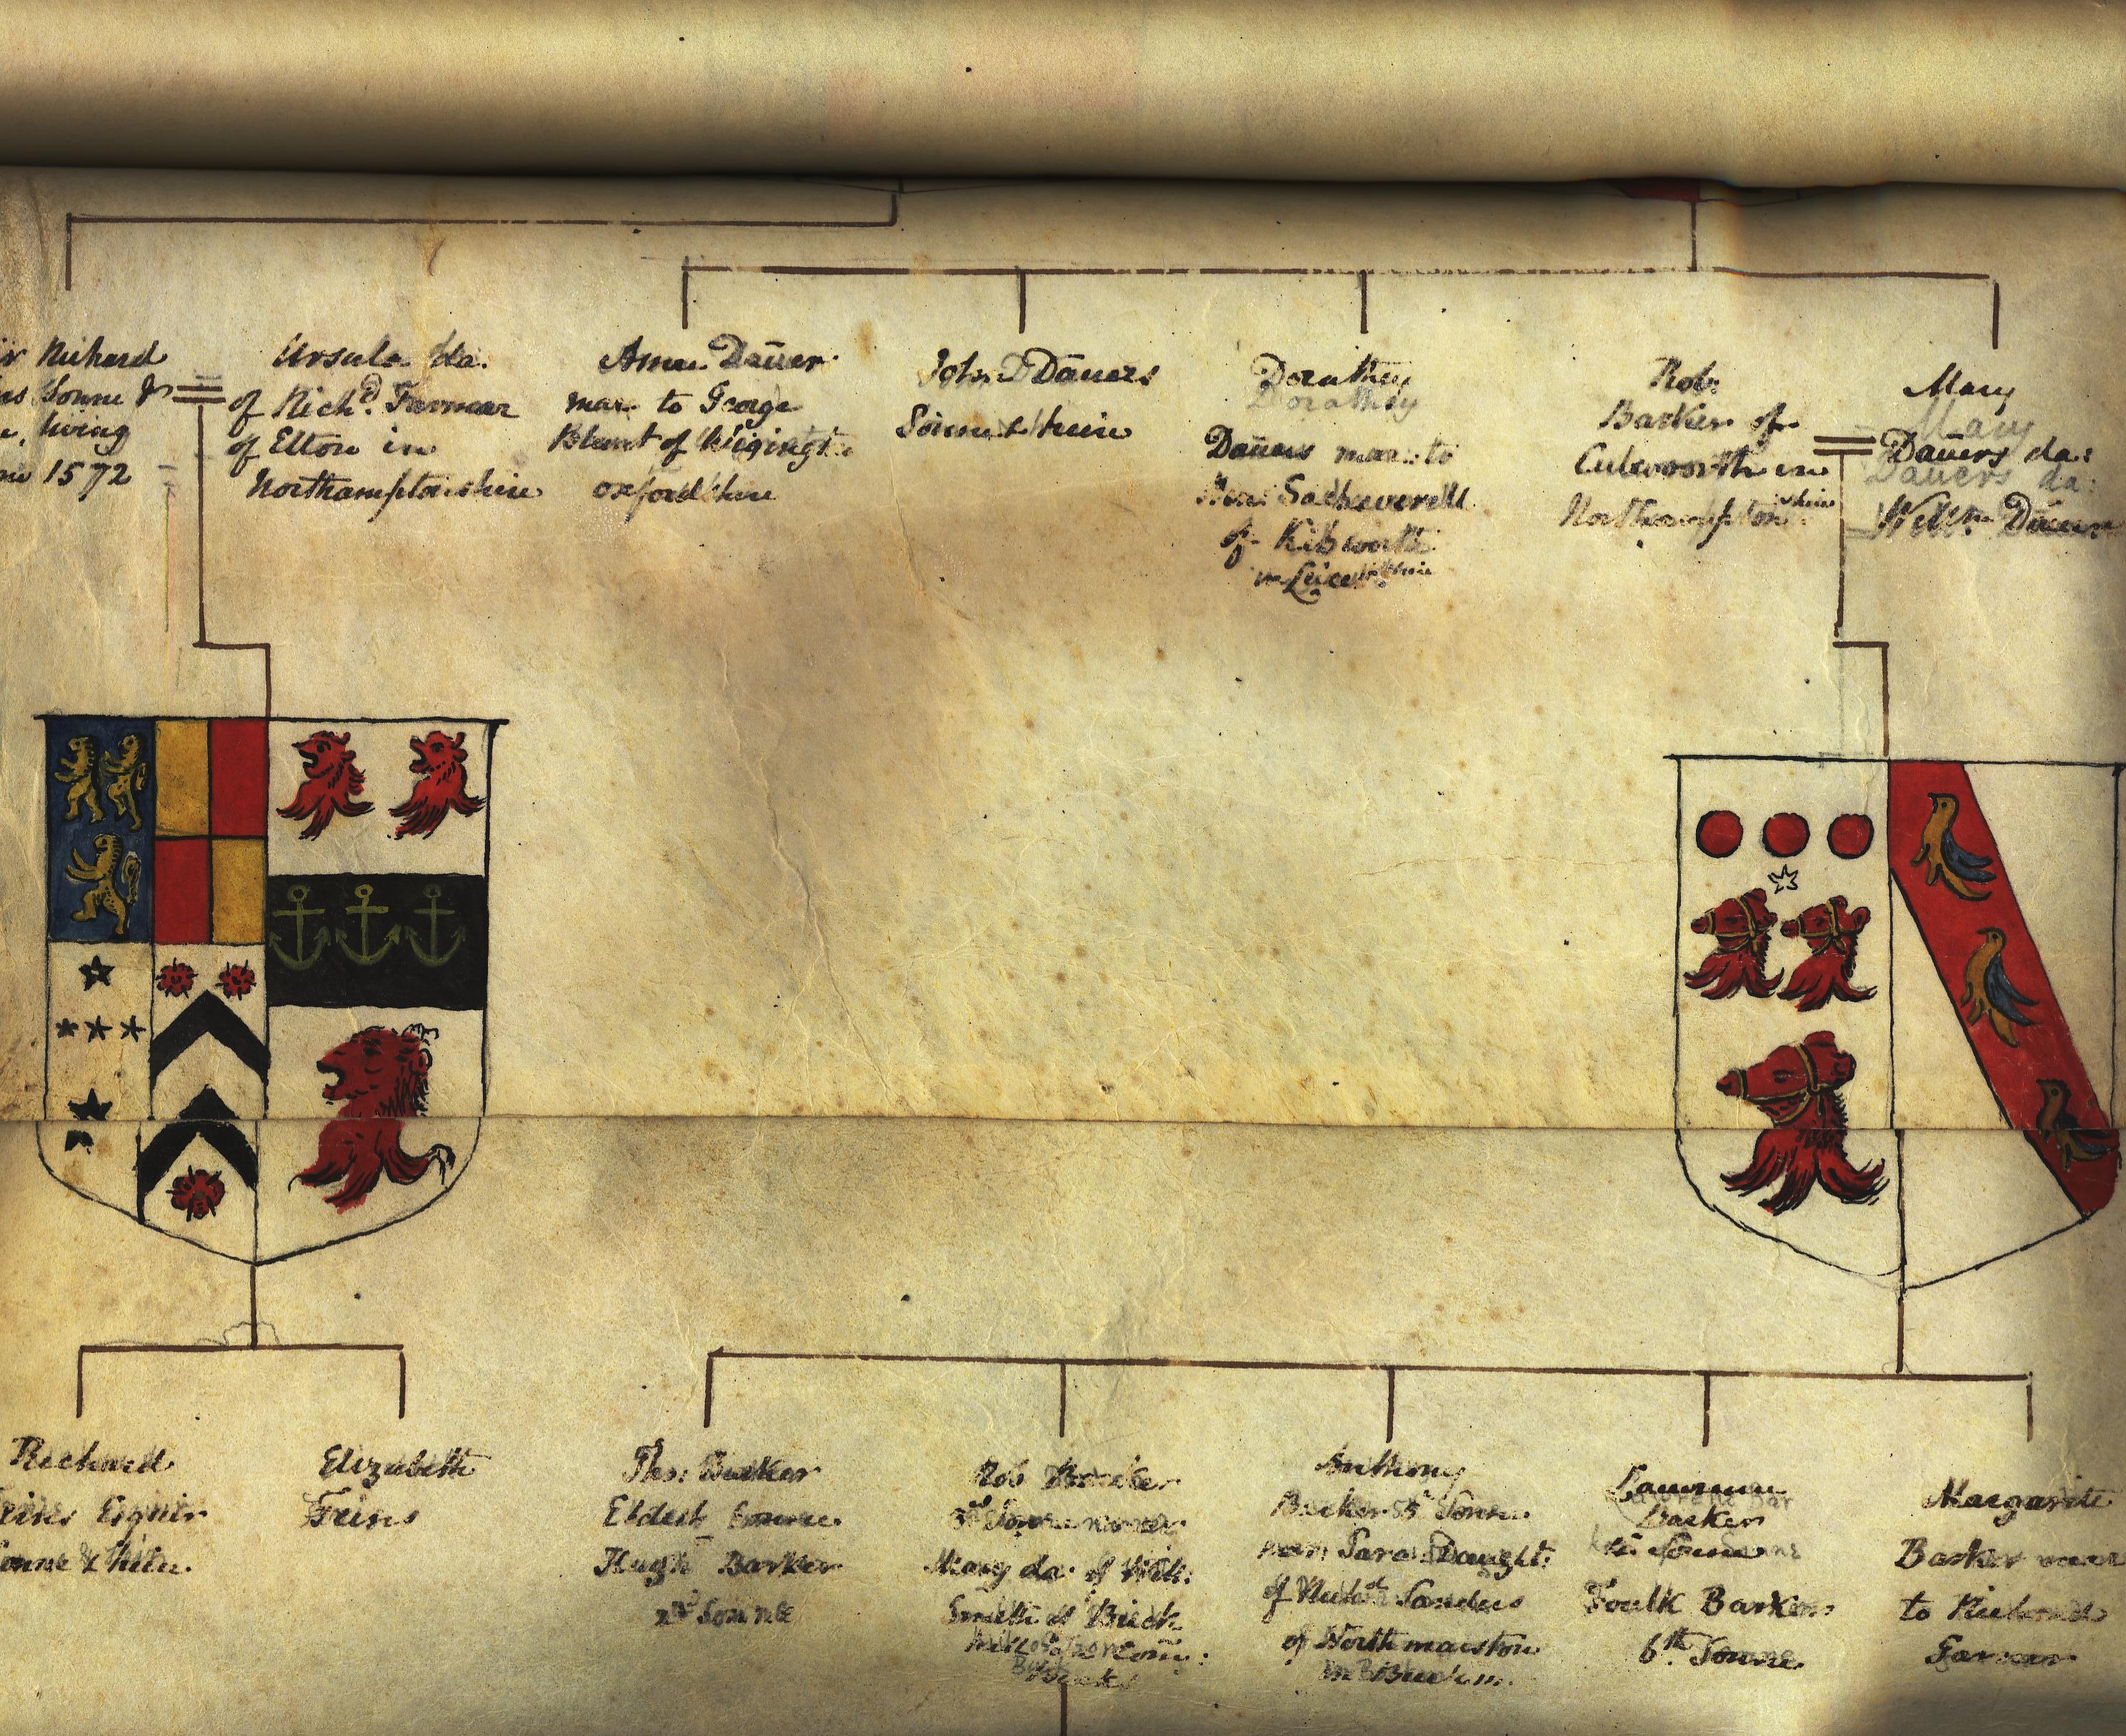 Richard
Sonne &
living
1572
Ursula da:
of Rich.d Farmear
of Elton in
Northamptonshire
Anne Dauer
mar. to George
Blunt of
oxfordshire
John Dauers
Sonne & heire
Dorathey
Dorathey
Dauers mar. to
Sacheverell
of Kibworth
in
Rob:
Barker of
Culworth in
Northamptonshire
Mary
Mary
Dauers da:
Dauers da:
Will.m Dauers
Richard
Sonne & heire.
Elizabeth
Feines
Tho: Barker
Eldest Sonne
Hugh Barker
2nd Sonne
Rob Barker
3d Sonne
Mary da. of Will:
Smith of
Bucks
Anthony
Barker Sonne
mar Sara Daught:
of Sanders
of Northmarston
in
Laurence
Barker
Sonne
Foulk Barker
6th Sonne
Margarite
Barker mar
to Richard
Farmar